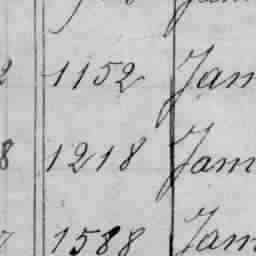 2 1152 Jam
8 1218 Jam
7 1588 Jam